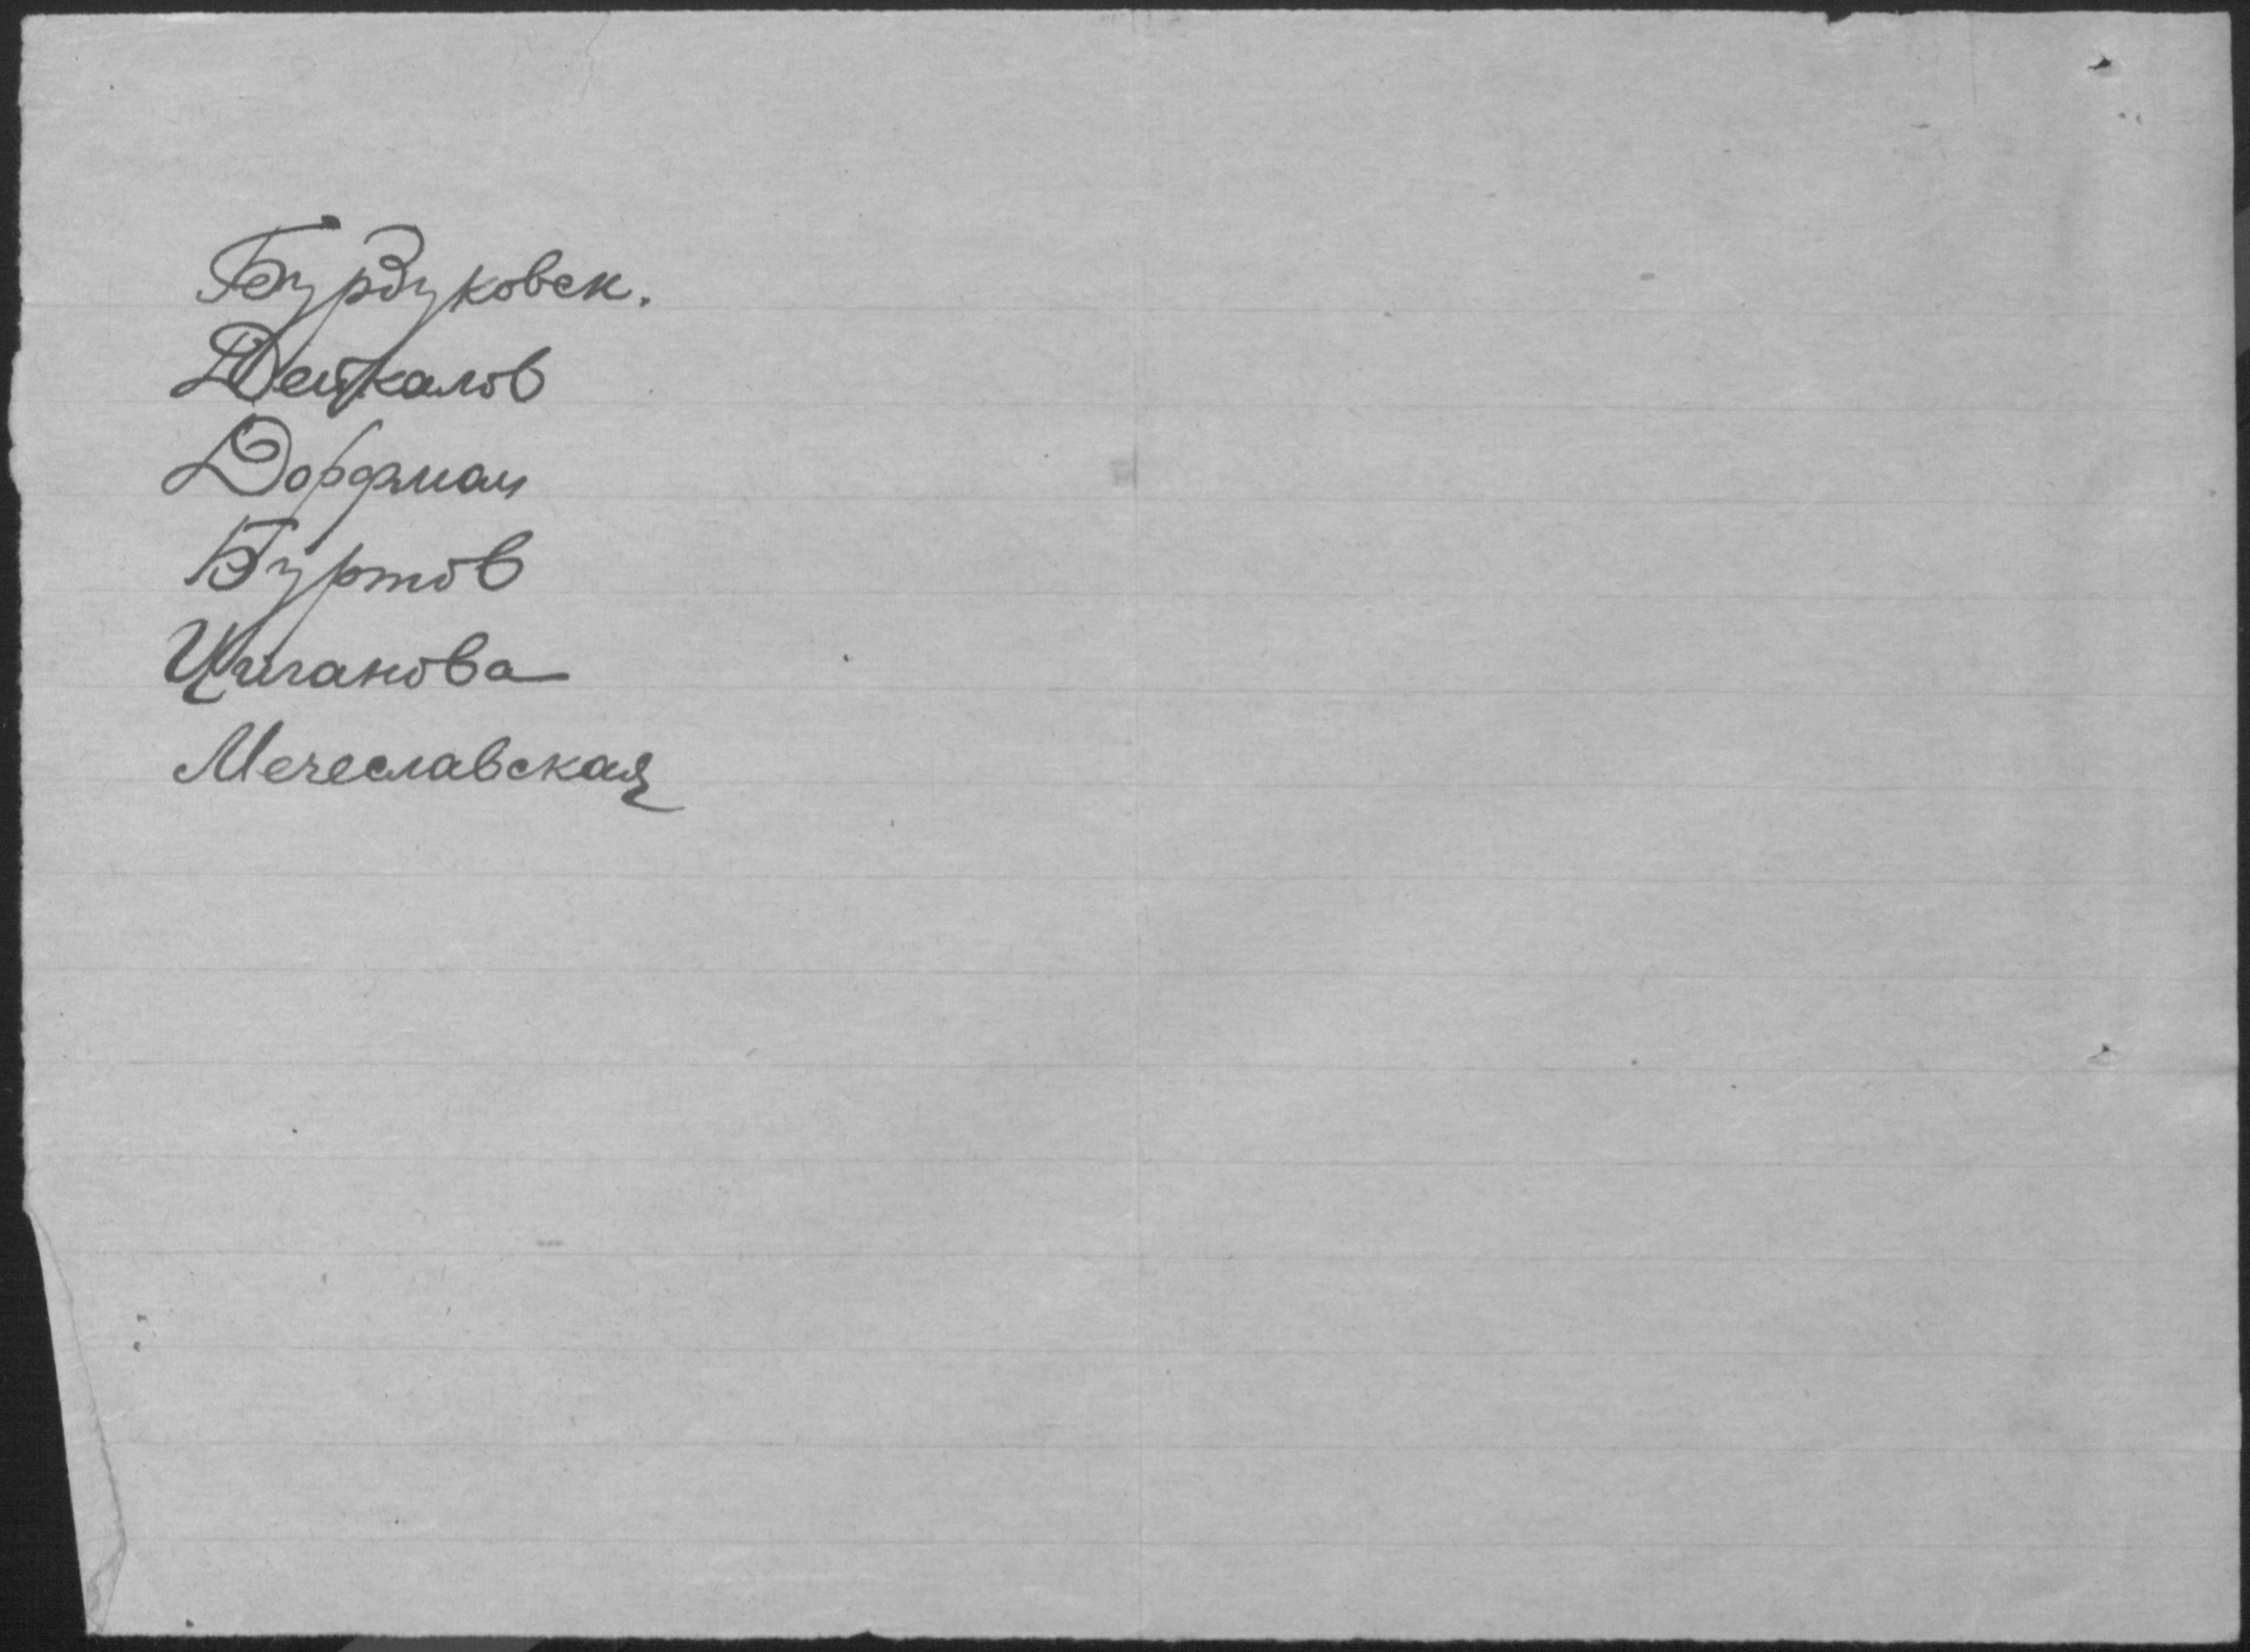 Бурдуковск.
Дейкалов
Дорфман
Буртов
Циганова
Мечеславская